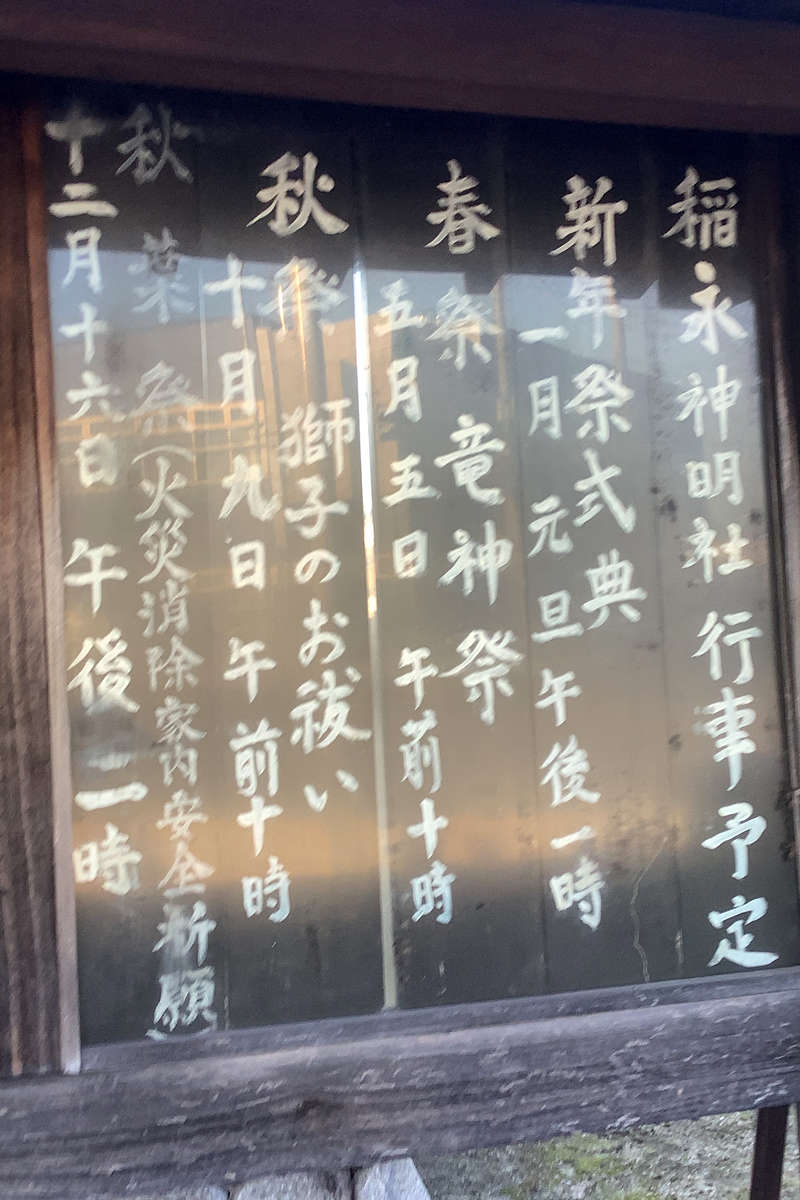 稲永神明社行事予定
新年祭式典
一月元旦午後一時
春祭 竜神祭
五月五日 午前十時
秋祭 獅子のお祓い
十月九日 午前十時
秋葉祭(火災消除家内安全祈願)
十二月十六日 午後二時